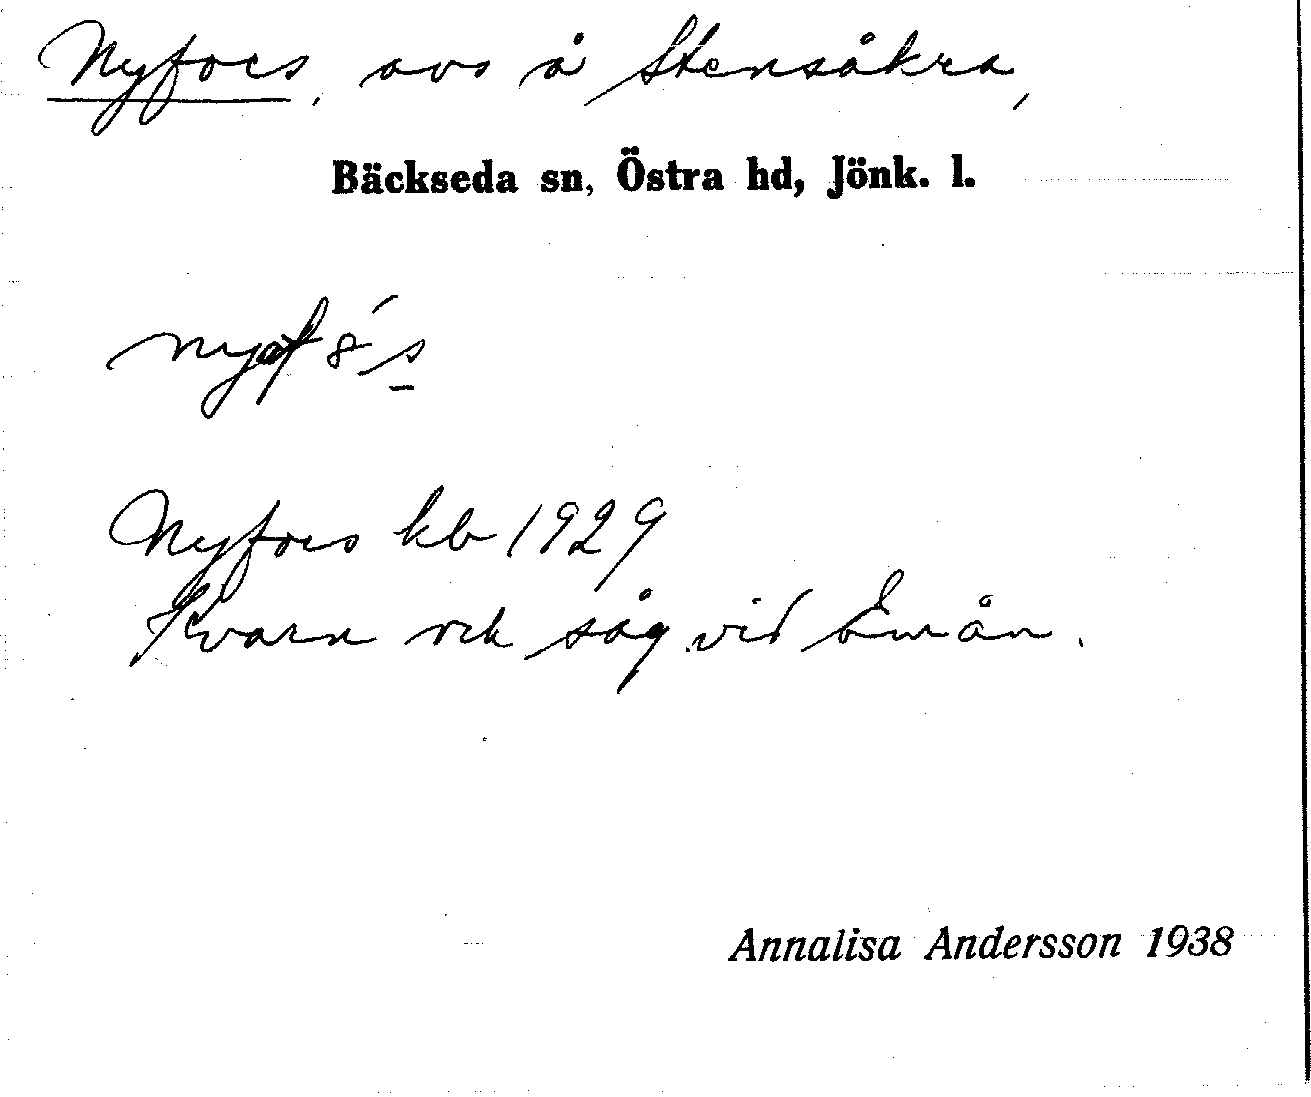 Nyfors, avs å Stensåkra,
Bäckseda sn, Östra hd, Jönk. l.
Nyfors kb 1929
Kvarn och såg vid Emån.
Annalisa Andersson 1938